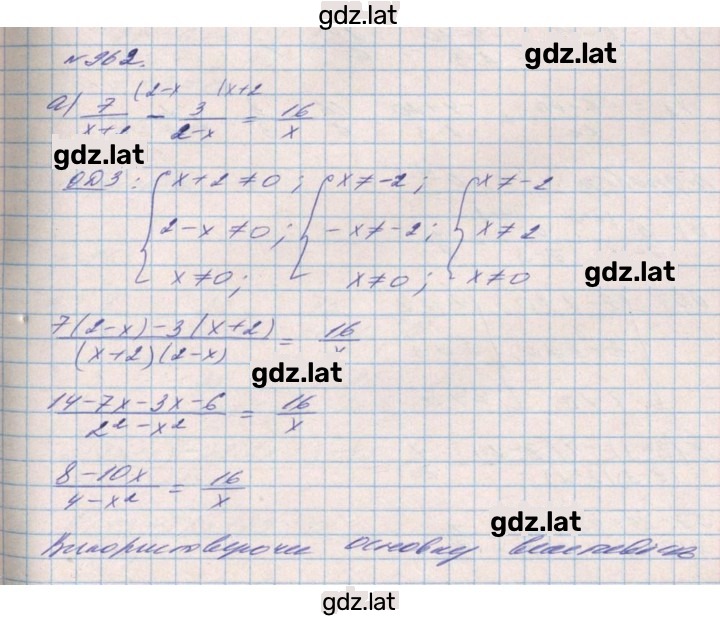 gdz.lat
№962.
gdz.lat
а) 7/(x+2) (2-x - 3/(2-x) (x+2 = 16/x
gdz.lat
ОДЗ: { x+2≠0; { x≠-2; { x≠-2
2-x≠0; -x≠-2; x≠2
x≠0; x≠0; x≠0
gdz.lat
(7(2-x)-3(x+2))/((x+2)(2-x)) = 16/x
gdz.lat
(14-7x-3x-6)/(2²-x²) = 16/x
(8-10x)/(4-x²) = 16/x
gdz.lat
Використовуючи основну властивість
gdz.lat